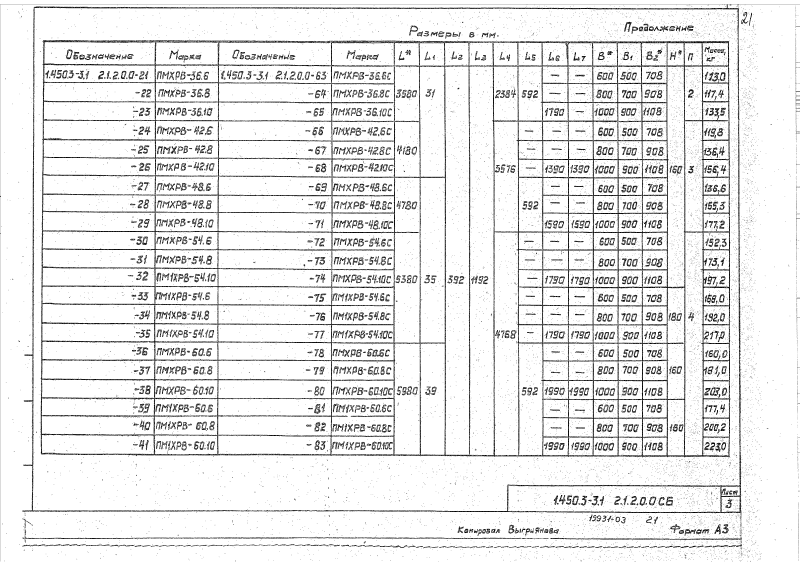 21
Размеры в мм. Продолжение
Обозначение Марка Обозначение Марка L* L1 L2 L3 L4 L5 L6 L7 B* B1 B2* H* П Масса, кг
1.450.3-3.1 2.1.2.0.0-21 ПМХРВ-36.6 1.450.3-3.1 2.1.2.0.0-63 ПМХРВ-36.6С — — 600 500 708 113,0
-22 ПМХРВ-36.8 -64 ПМХРВ-36.8С 3580 31 2384 592 — — 800 700 908 2 117,4
-23 ПМХРВ-36.10 -65 ПМХРВ-36.10С 1790 — 1000 900 1108 133,5
-24 ПМХРВ-42.6 -66 ПМХРВ-42.6С — — — 600 500 708 119,8
-25 ПМХРВ-42.8 -67 ПМХРВ-42.8С 4180 — — — 800 700 908 136,4
-26 ПМХРВ-42.10 -68 ПМХРВ-42.10С 3576 — 1390 1390 1000 900 1108 160 3 156,4
-27 ПМХРВ-48.6 -69 ПМХРВ-48.6С — — 600 500 708 136,6
-28 ПМХРВ-48.8 -70 ПМХРВ-48.8С 4780 592 — — 800 700 908 155,3
-29 ПМХРВ-48.10 -71 ПМХРВ-48.10С 1590 1590 1000 900 1108 177,2
-30 ПМХРВ-54.6 -72 ПМХРВ-54.6С — — — 600 500 708 152,3
-31 ПМХРВ-54.8 -73 ПМХРВ-54.8С — — — 800 700 908 173,1
-32 ПМ1ХРВ-54.10 -74 ПМХРВ-54.10С 5380 35 392 1192 — 1790 1790 1000 900 1108 197,2
-33 ПМ1ХРВ-54.6 -75 ПМ1ХРВ-54.6С — — — 600 500 708 169,0
-34 ПМ1ХРВ-54.8 -76 ПМ1ХРВ-54.8С — — — 800 700 908 180 4 192,0
-35 ПМ1ХРВ-54.10 -77 ПМ1ХРВ-54.10С 4768 — 1790 1790 1000 900 1108 217,0
-36 ПМХРВ-60.6 -78 ПМХРВ-60.6С — — 600 500 708 160,0
-37 ПМХРВ-60.8 -79 ПМХРВ-60.8С — — 800 700 908 160 181,0
-38 ПМХРВ-60.10 -80 ПМХРВ-60.10С 5980 39 592 1990 1990 1000 900 1108 203,0
-39 ПМ1ХРВ-60.6 -81 ПМ1ХРВ-60.6С — — 600 500 708 177,4
-40 ПМ1ХРВ-60.8 -82 ПМ1ХРВ-60.8С — — 800 700 908 180 200,2
-41 ПМ1ХРВ-60.10 -83 ПМ1ХРВ-60.10С 1990 1990 1000 900 1108 223,0
1.450.3-3.1 2.1.2.0.0 СБ Лист 3
19931-03 21
Копировал Выгриянова Формат А3